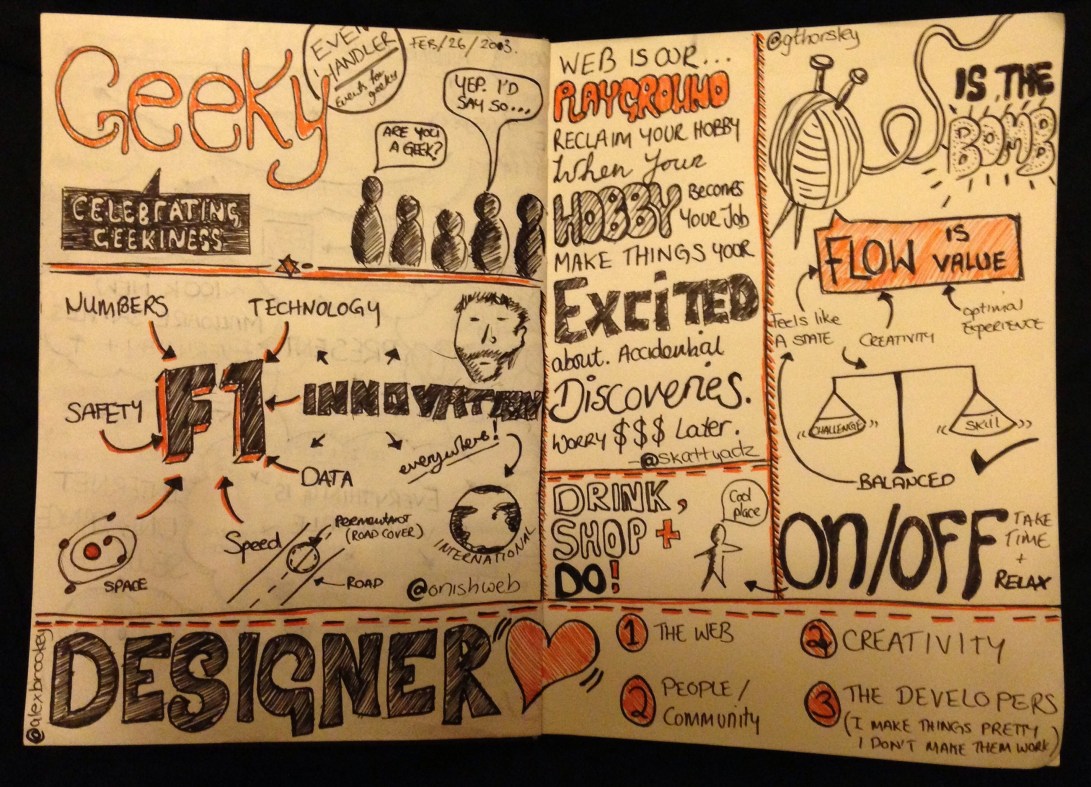 Geeky
EVENT
HANDLER
Events for
geeks
FEB/26/2013.
ARE YOU
A GEEK?
YEP. I'D
SAY SO...
CELEBRATING
GEEKINESS
NUMBERS
TECHNOLOGY
SAFETY
F1
INNOVATION
everywhere!
DATA
Speed
PERMANENT
(ROAD COVER)
ROAD
SPACE
INTERNATIONAL
@onishweb
WEB IS OUR...
PLAYGROUND
RECLAIM YOUR HOBBY
When Your
HOBBY BECOMES
YOUR JOB
MAKE THINGS YOUR
EXCITED
about. Accidential
Discoveries.
WORRY $$$ Later.
@skattyadz
DRINK,
SHOP +
DO!
Cool
place
@gthorsley
IS THE
BOMB
FLOW IS
VALUE
Feels like
A STATE
CREATIVITY
optimial
Experience
CHALLENGE
Skill
BALANCED
ON/OFF
TAKE
TIME
+
RELAX
@alexbrookey
DESIGNER
1 THE WEB
2 PEOPLE/
Community
2 CREATIVITY
3 THE DEVELOPERS
(I MAKE THINGS PRETTY
I DON'T MAKE THEM WORK)